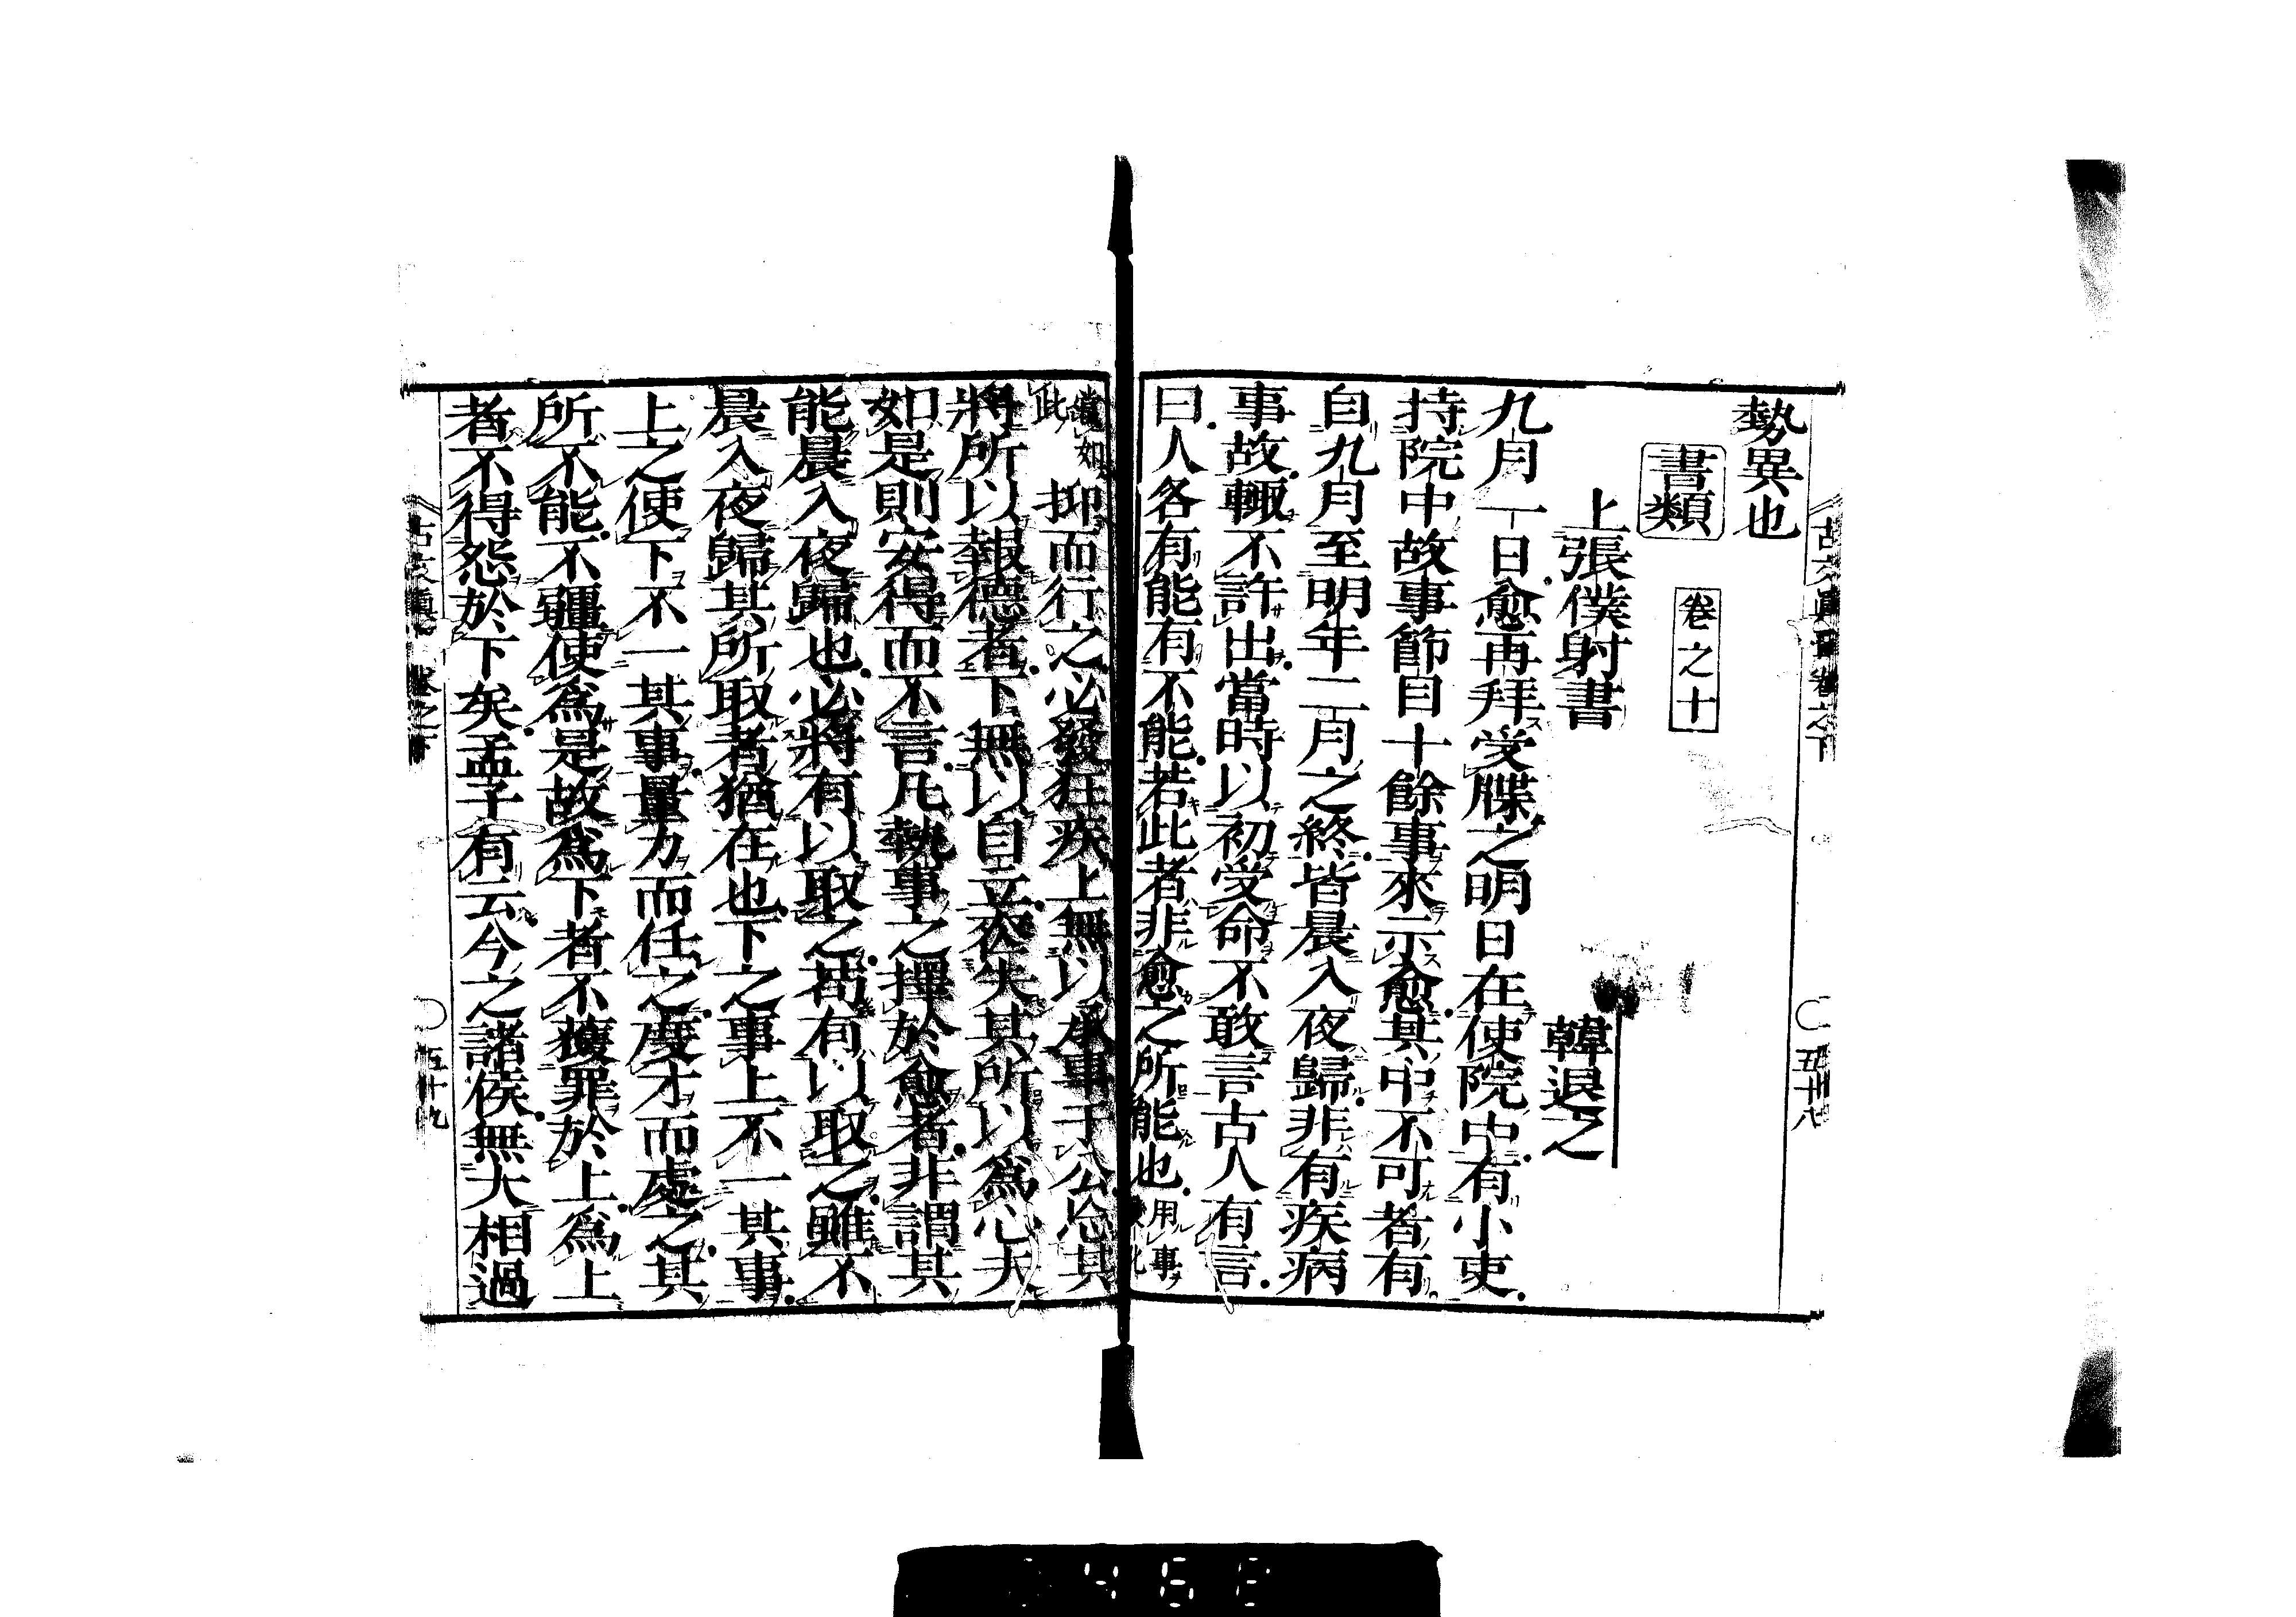 勢異也
書類
卷之十
上張僕射書
韓退之
九月一日愈再拜受牒之明日在使院中有小吏
持院中故事節目十餘事來示愈其中不可者有
自九月至明年二月之終皆晨入夜歸非有疾病
事故輒不許出當時以初受命不敢言古人有言
曰人各有能有不能若此者非愈之所能也
用事
當如此
抑而行之必發狂疾上無以承事于公忘其
將所以報德者下無以自立喪失其所以爲心夫
如是則安得而不言凡執事之擇於愈者非謂其
能晨入夜歸也必將有以取之苟有以取之雖不
晨入夜歸其所取者猶在也下之事上不一其事
上之使下不一其事量力而任之度才而處之其
所不能不彊使爲是故爲下者不獲罪於上爲上
者不得怨於下矣孟子有云今之諸侯無大相過
五十九